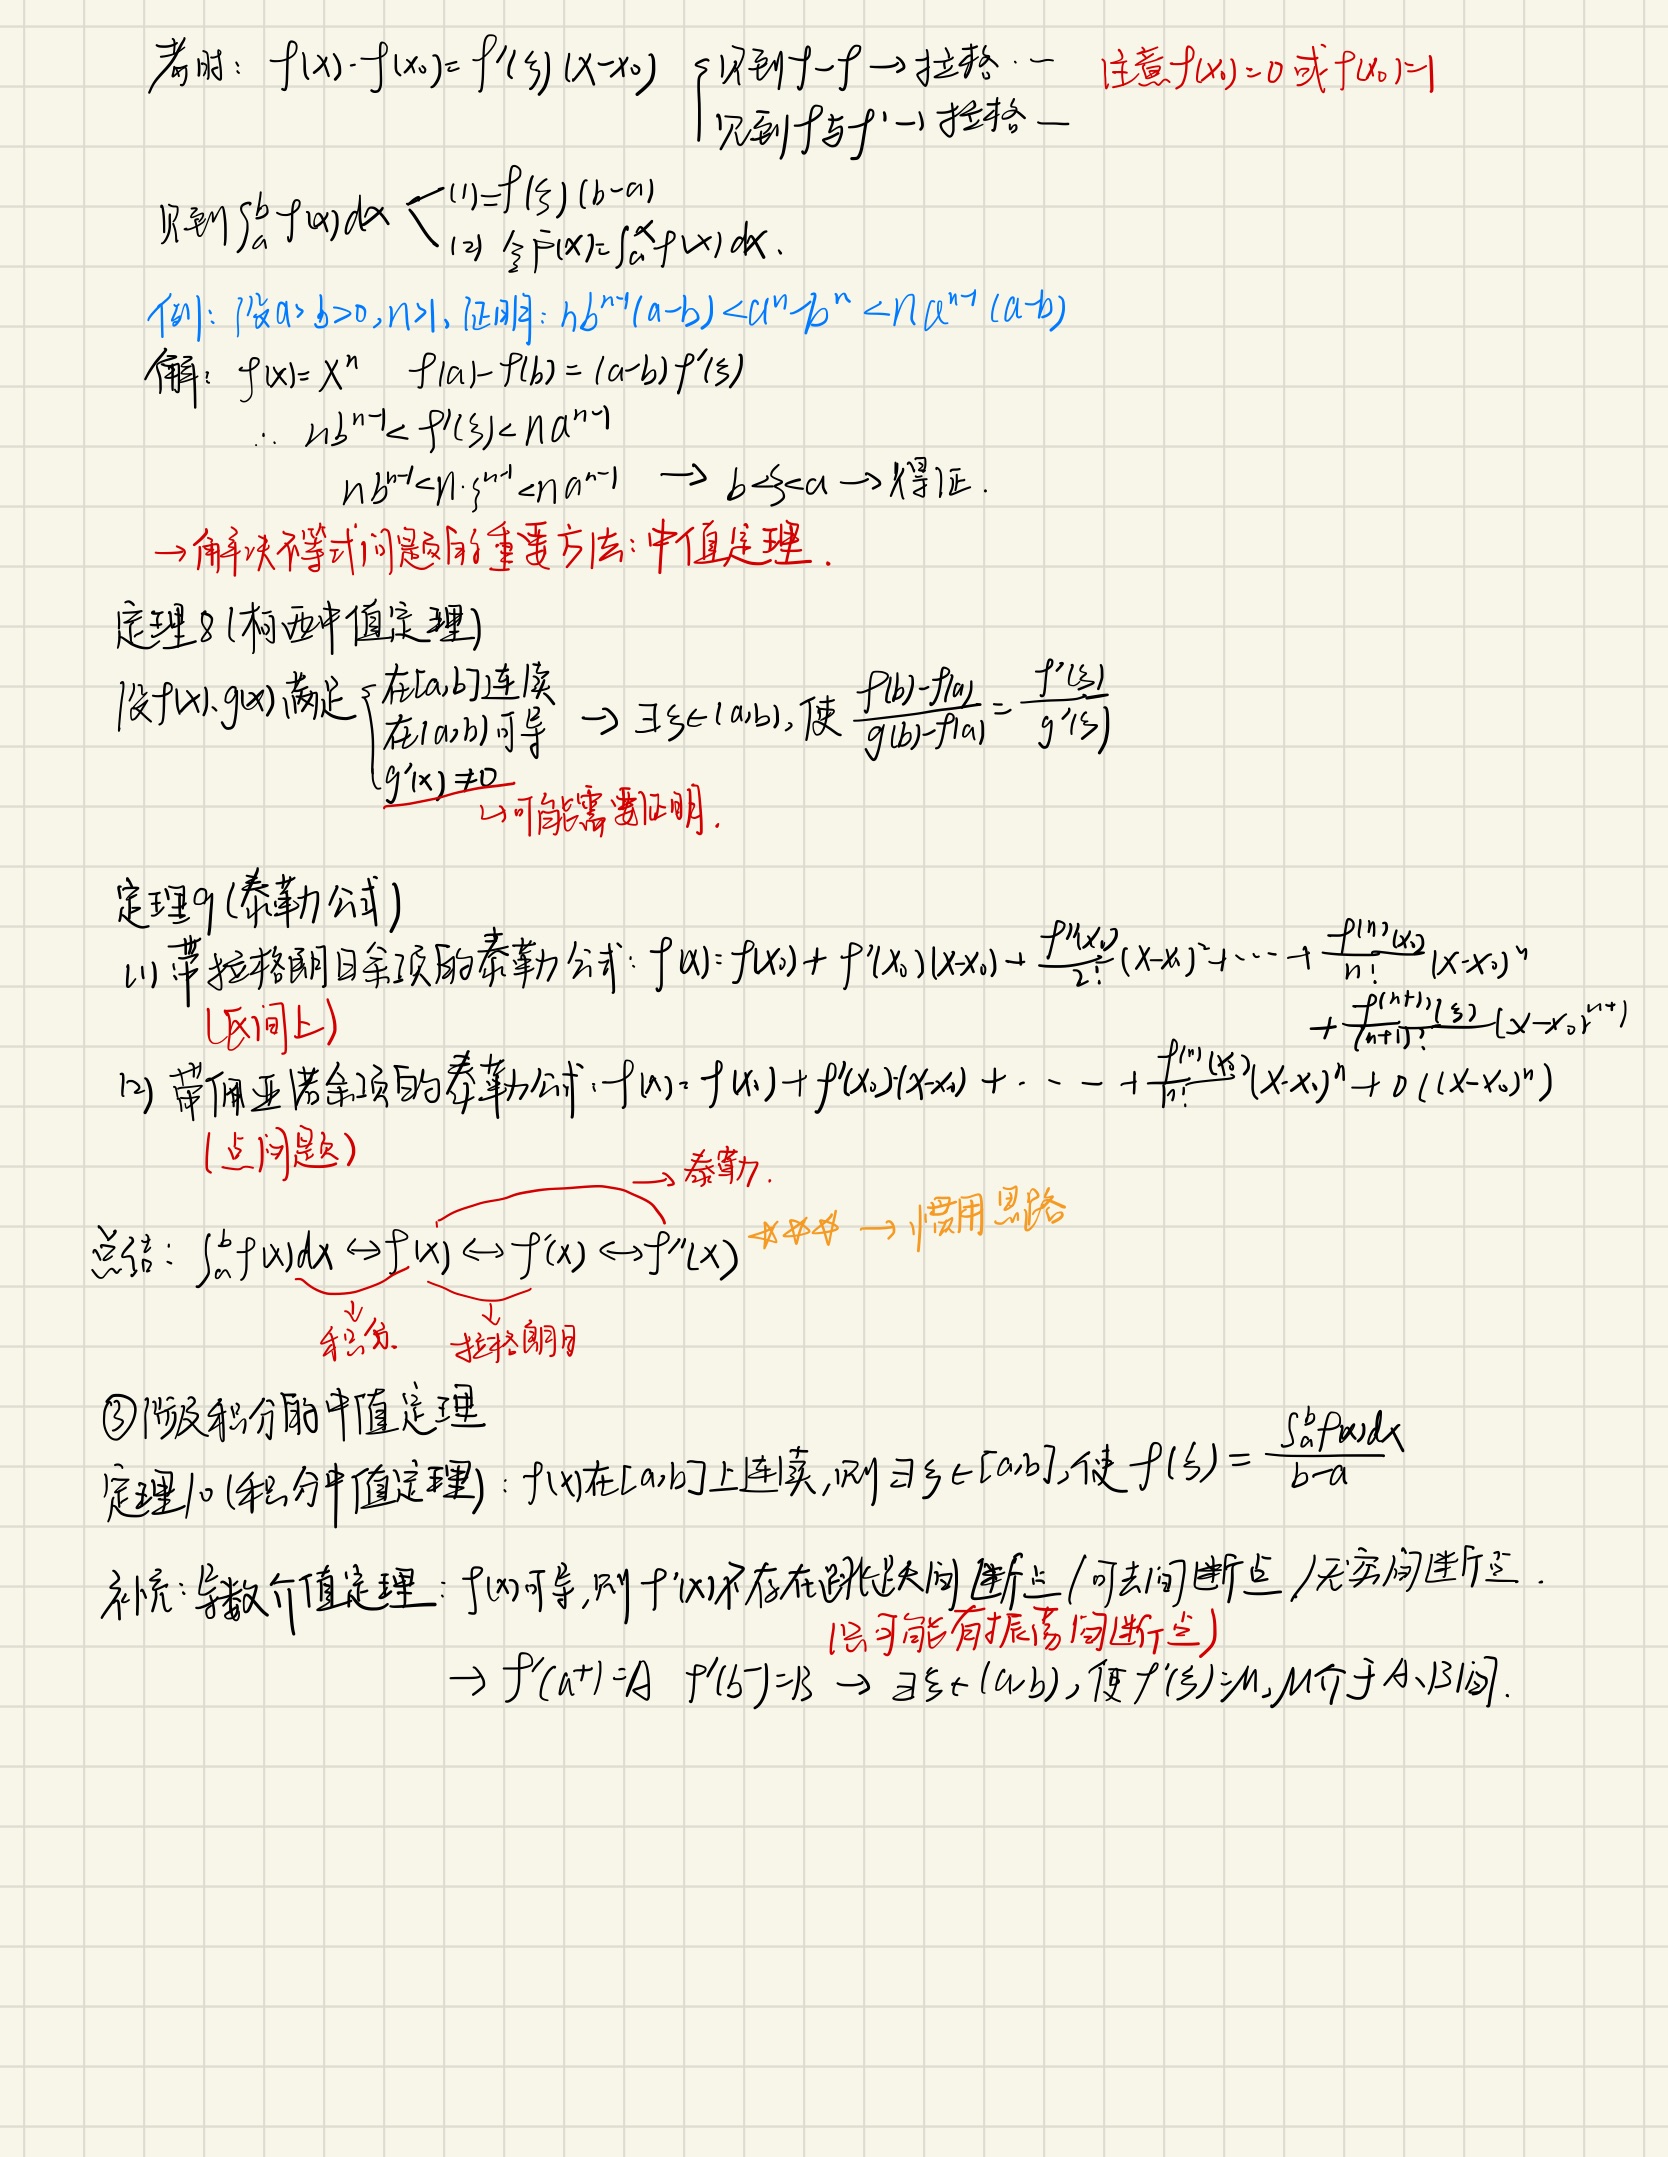 考时：f(x)-f(x₀)=f'(ξ)(x-x₀) { 见到f-f→拉格… 注意f(x₀)=0或f(x₀)=1
见到f与f'→拉格—
见到∫ₐᵇf(x)dx < (1)=f(ξ)(b-a)
(2) 令F(x)=∫ₐˣf(x)dx.
例：设a>b>0,n>1,证明：nbⁿ⁻¹(a-b)<aⁿ-bⁿ<naⁿ⁻¹(a-b)
解：f(x)=xⁿ f(a)-f(b)=(a-b)f'(ξ)
∴ nbⁿ⁻¹<f'(ξ)<naⁿ⁻¹
nbⁿ⁻¹<n·ξⁿ⁻¹<naⁿ⁻¹ → b<ξ<a→得证.
→解决不等式问题的重要方法：中值定理.
定理8(柯西中值定理)
设f(x)、g(x)满足 { 在[a,b]连续
在(a,b)可导 → ∃ξ∈(a,b),使 (f(b)-f(a))/(g(b)-f(a)) = f'(ξ)/g'(ξ)
g'(x)≠0
↳可能需要证明.
定理9(泰勒公式)
(1) 带拉格朗日余项的泰勒公式：f(x)=f(x₀)+f'(x₀)(x-x₀)+f''(x₀)/2!(x-x₀)²+…+f⁽ⁿ⁾(x₀)/n!(x-x₀)ⁿ
(区间上) +f⁽ⁿ⁺¹⁾(ξ)/(n+1)!(x-x₀)ⁿ⁺¹
(2) 带佩亚诺余项的泰勒公式：f(x)=f(x₀)+f'(x₀)(x-x₀)+…+f⁽ⁿ⁾(x₀)/n!(x-x₀)ⁿ+o((x-x₀)ⁿ)
(点问题)
→泰勒.
总结：∫ₐᵇf(x)dx↔f(x)↔f'(x)↔f''(x) ☆☆☆→惯用思路
积分. 拉格朗日
③涉及积分的中值定理
定理10(积分中值定理)：f(x)在[a,b]上连续,则∃ξ∈[a,b],使f(ξ)=∫ₐᵇf(x)dx/(b-a)
补充：导数介值定理：f(x)可导,则f'(x)不存在跳跃间断点/可去间断点/无穷间断点.
(只可能有振荡间断点)
→f'(a⁺)=A f'(b⁻)=B → ∃ξ∈(a,b),使f'(ξ)=M,M介于A、B间.